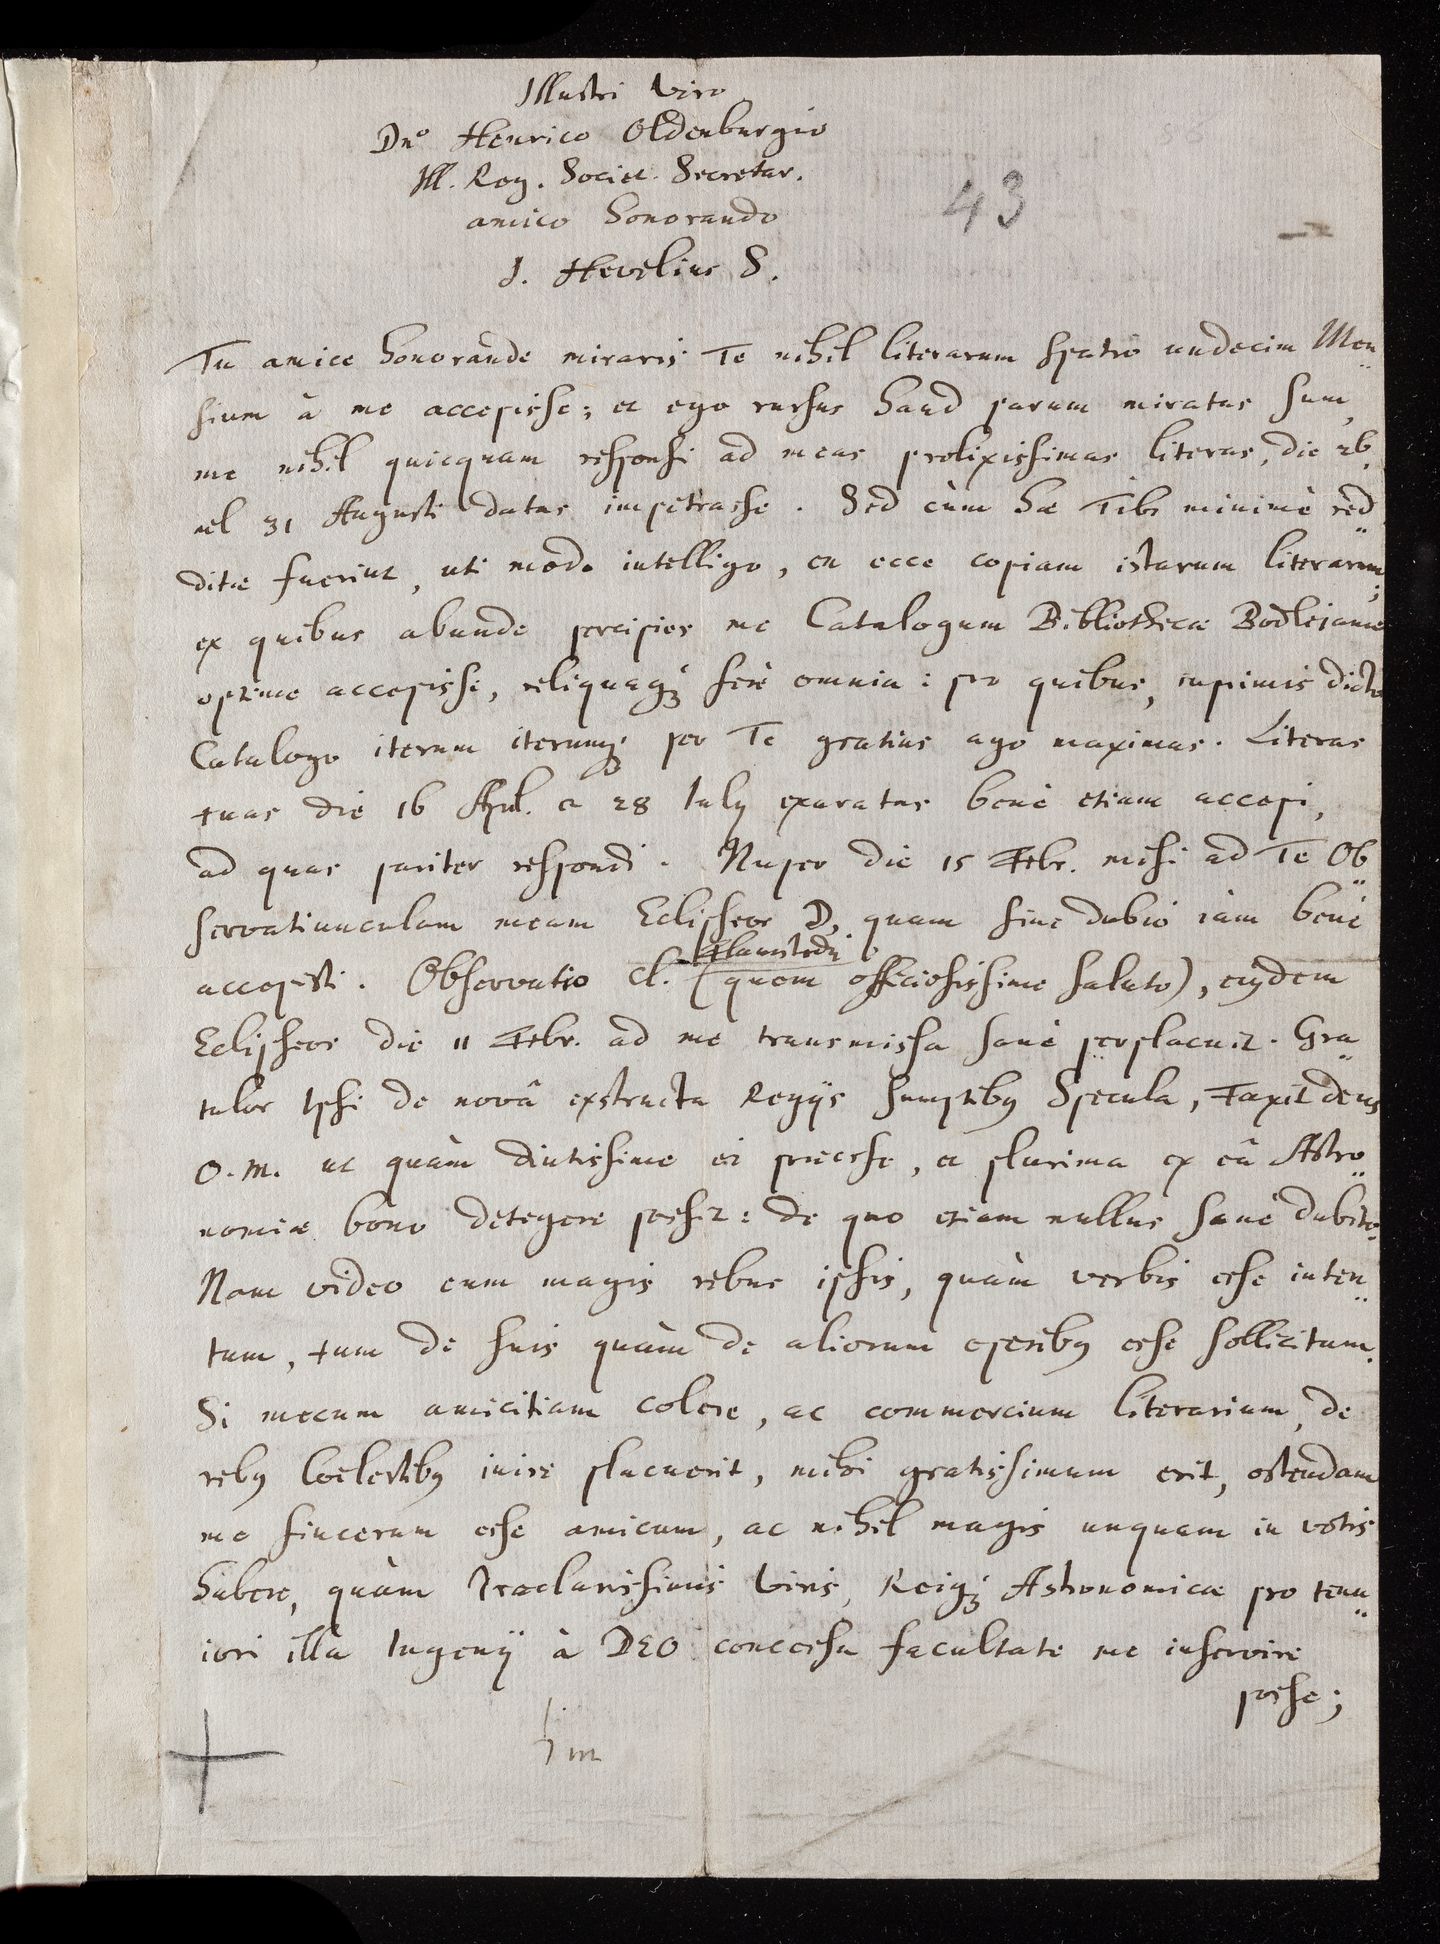 Illustri Viro
Dn° Henrico Oldenburgio
Ill. Reg. Societ. Secretar.
amico honorando
J. Hevelius S.
43
Tu amice honorande miraris Te nihil literarum spatio undecim Men
sium à me accepisse; et ego rursus haud parum miratus sum,
me nihil quicquam responsi ad meas prolixissimas literas, die 26,
vel 31 Augusti datas impetrasse. Sed cùm hæ Tibi minimè red
ditæ fuerint, uti modo intelligo, en ecce copiam istarum literarum;
ex quibus abunde percipies me Catalogum Bibliothecæ Bodlejanæ
optime accepisse, reliquaqꝫ ferè omnia: pro quibus, inprimis dicto
Catalogo iterum iterumqꝫ per Te gratias ago maximas. Literas
tuas die 16 Apul. et 28 Iuly exaratas benè etiam accepi,
ad quas pariter respondi. Nuper die 15 Febr. misi ad Te Ob
servatiunculam meam Eclipseos ☽, quam sine dubio iam benè
Flamstedy
accepisti. Observatio Cl. (quem officiosissime saluto), eiusdem
Eclipseos die 11 Febr. ad me transmissa sanè perplacuit. Gra
tulor Ipsi de novâ exstructa Regijs sumptibꝰ Specula, Faxit Deus
O. M. ut quàm diutissime ei præesse, et plurima ex eâ Astro
nomiæ bono detegere possit: de quo etiam nullus sanè dubito.
Nam video eum magis rebus ipsis, quàm verbis esse inten
tum, tum de suis quàm de aliorum operibꝰ esse sollicitum.
Si mecum amicitiam colere, ac commercium literarium, de
rebꝰ Coelestibꝰ inire placuerit, mihi gratissimum erit, ostendam
me sincerum esse amicum, ac nihil magis unquam in votis
habere, quàm Præclarissimis Viris, Reiqꝫ Astronomicæ pro tenu
iori illa Ingenij à DEO concessa facultate me inservire
posse;